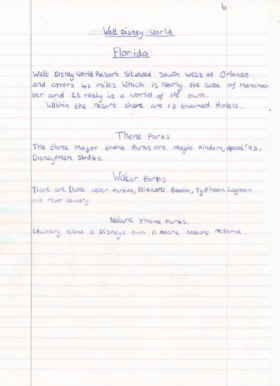 6
Walt Disney World
Florida
Walt Disney World Resort situated South west of Orlando
and covers 42 miles which is nearly the size of Manches
ter and it really is a world of its own.
Within the resort there are 12 themed Hotels.
Theme Parks
The three major theme parks are, magic kindom,
Disney MGM Studios.
Water Parks
There are three water parks, Blizzard Beach, Typhoon Lagoon
and river country
Nature Theme Parks.
Discovery island is Disneys own nature reserve.